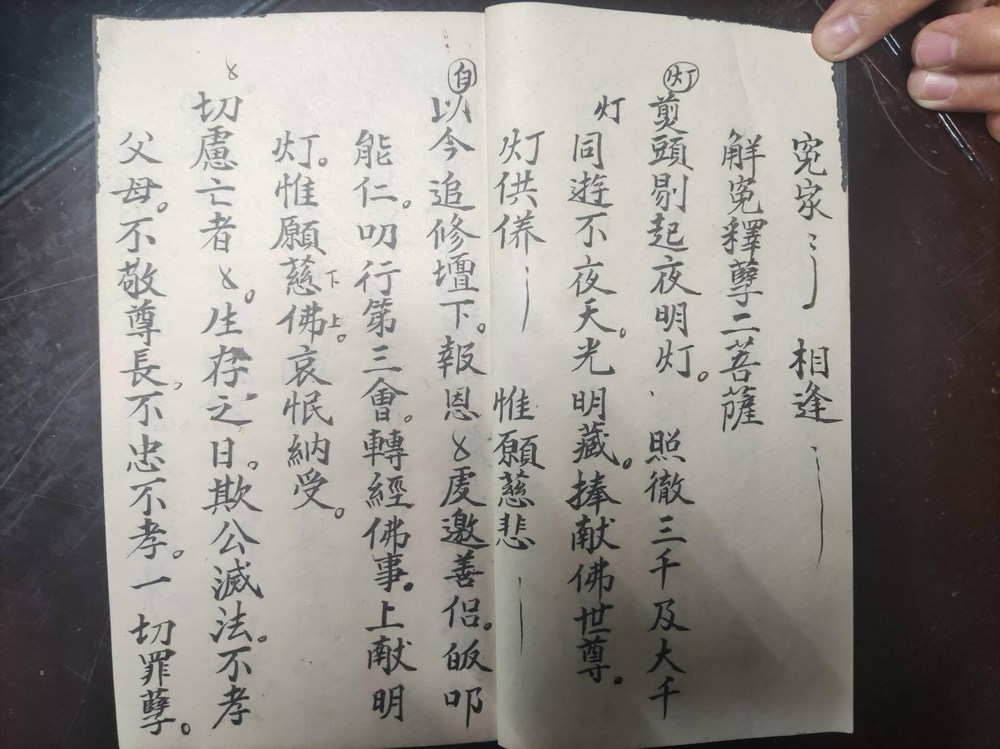 寃家〻 相逢
解寃釋孽二菩薩
灯
剪頭剔起夜明灯。照徹三千及大千
灯
同遊不夜天。光明藏。捧献佛世尊。
灯供养 惟願慈悲
自
以今追修壇下。報恩〻處邀善侣。皈叩
能仁。叨行第三會。轉經佛事。上献明
灯。惟願慈下佛上。哀愍納受。
切慮亡者〻。生存之日。欺公滅法。不孝
父母。不敬尊長。不忠不孝。一切罪孽。